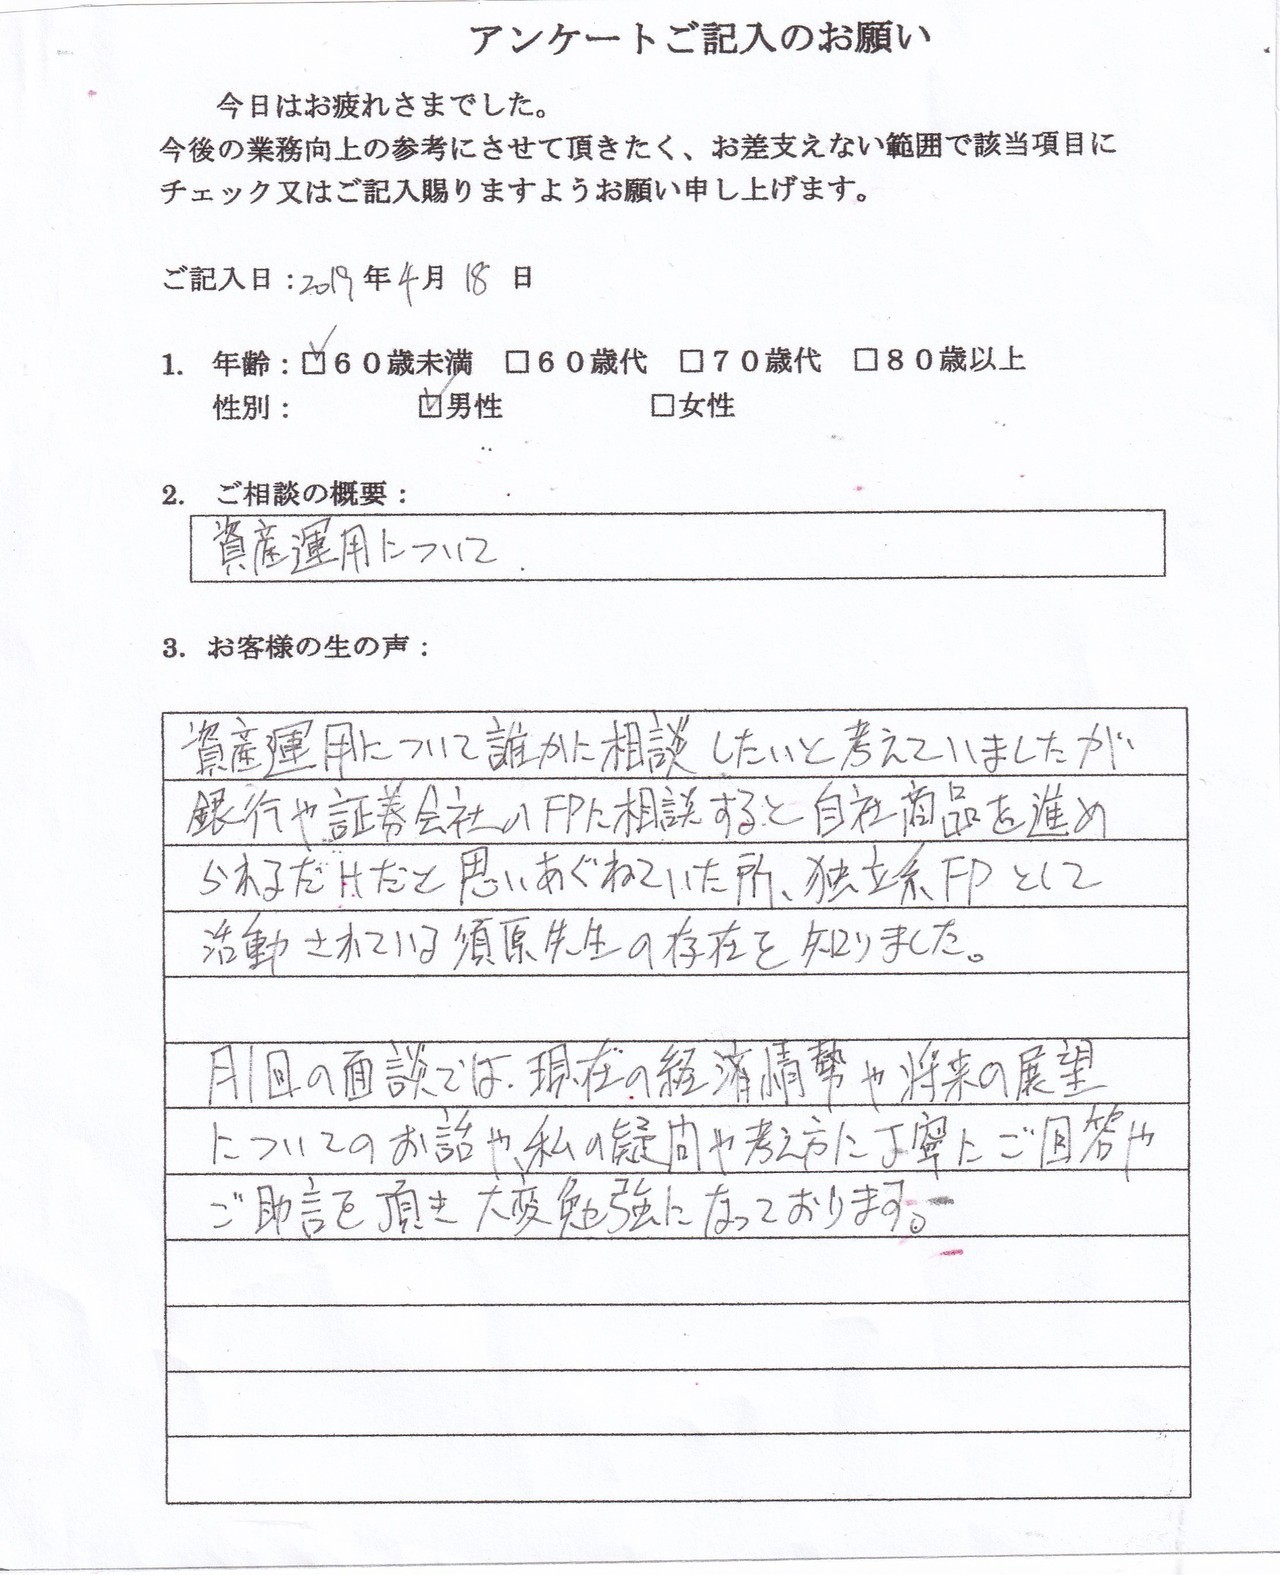 アンケートご記入のお願い
今日はお疲れさまでした。
今後の業務向上の参考にさせて頂きたく、お差支えない範囲で該当項目に
チェック又はご記入賜りますようお願い申し上げます。
ご記入日：2019年4月18日
1. 年齢：☑６０歳未満 □６０歳代 □７０歳代 □８０歳以上
性別： ☑男性 □女性
2. ご相談の概要：
資産運用について
3. お客様の生の声：
資産運用について誰かに相談したいと考えていましたが、
銀行や証券会社のFPに相談すると自社商品を進め
られるだけだと思いあぐねていた所、独立系FPとして
活動されている須原先生の存在を知りました。
月1回の面談では、現在の経済情勢や将来の展望
についてのお話や、私の疑問や考え方に丁寧にご回答や
ご助言を頂き大変勉強になっております。